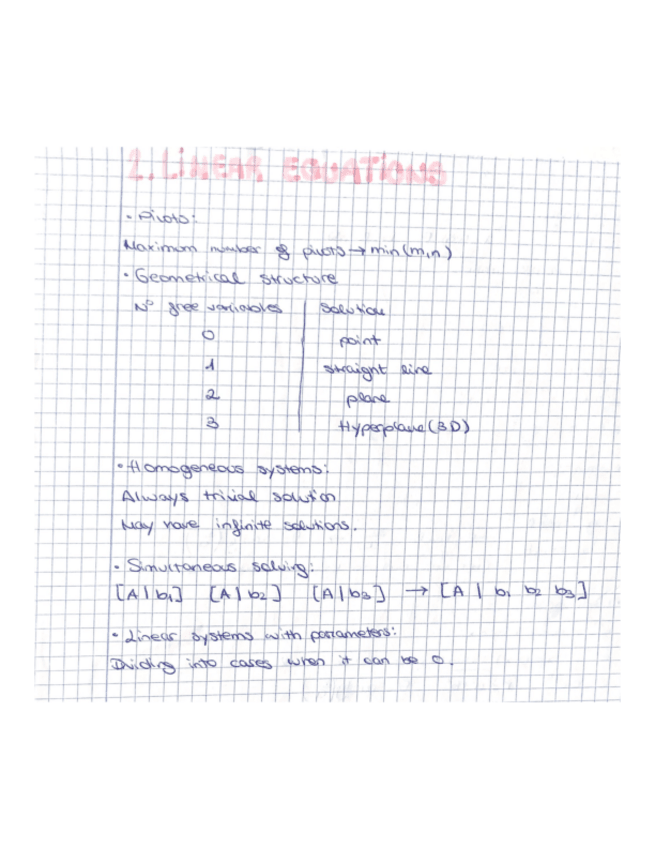 2. LINEAR EQUATIONS
• Pivots:
Maximum number of pivots → min(m,n)
• Geometrical structure
Nº free variables | Solution
0 | point
1 | straight line
2 | plane
3 | Hyperplane (3D)
• Homogeneous systems:
Always trivial solution
May have infinite solutions.
• Simultaneous solving:
[A|b₁] [A|b₂] [A|b₃] → [A | b₁ b₂ b₃]
• Linear systems with parameters:
Dividing into cases when it can be 0.